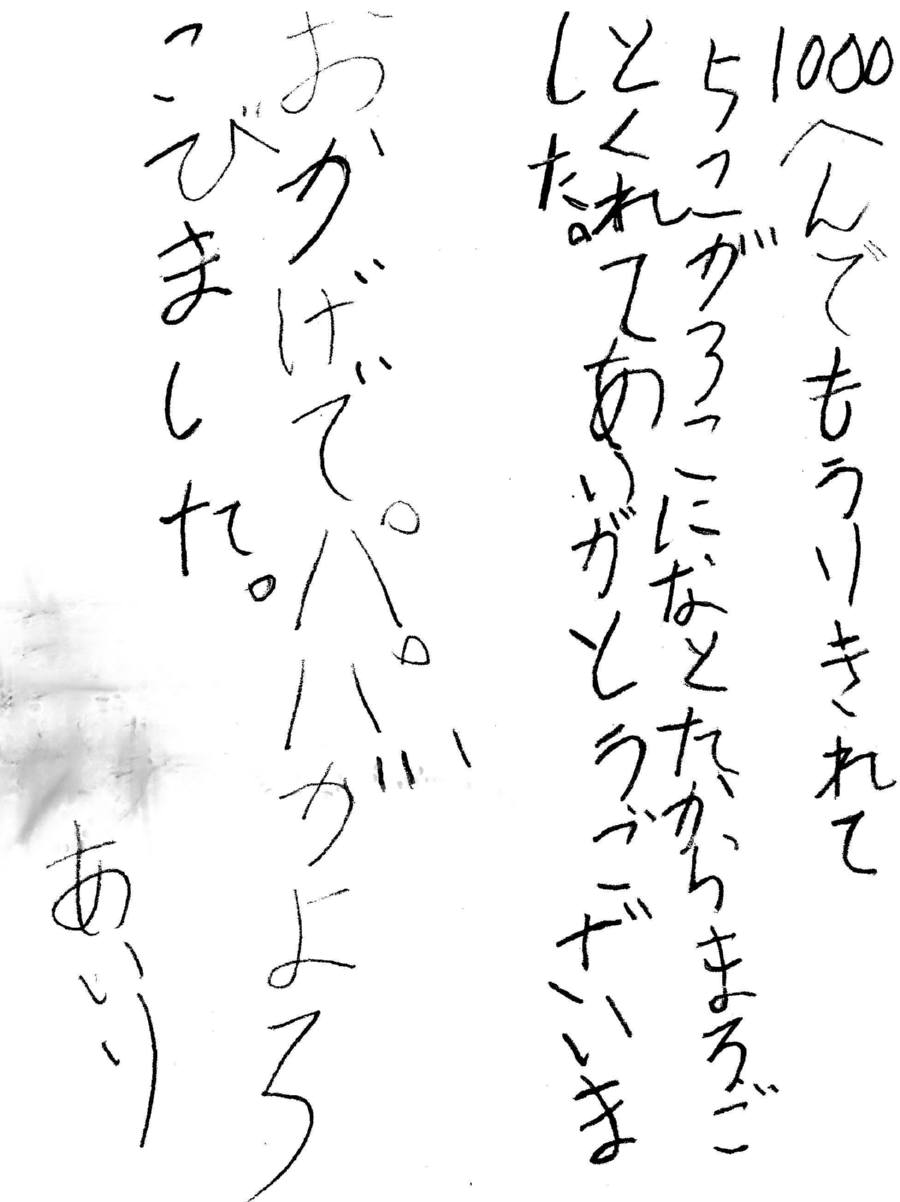 1000へんでもうりきれて
らっこがろっこになとたからまるご
とくれてありがとうございま
した。
おかげでパパがよろ
こびました。
あいり